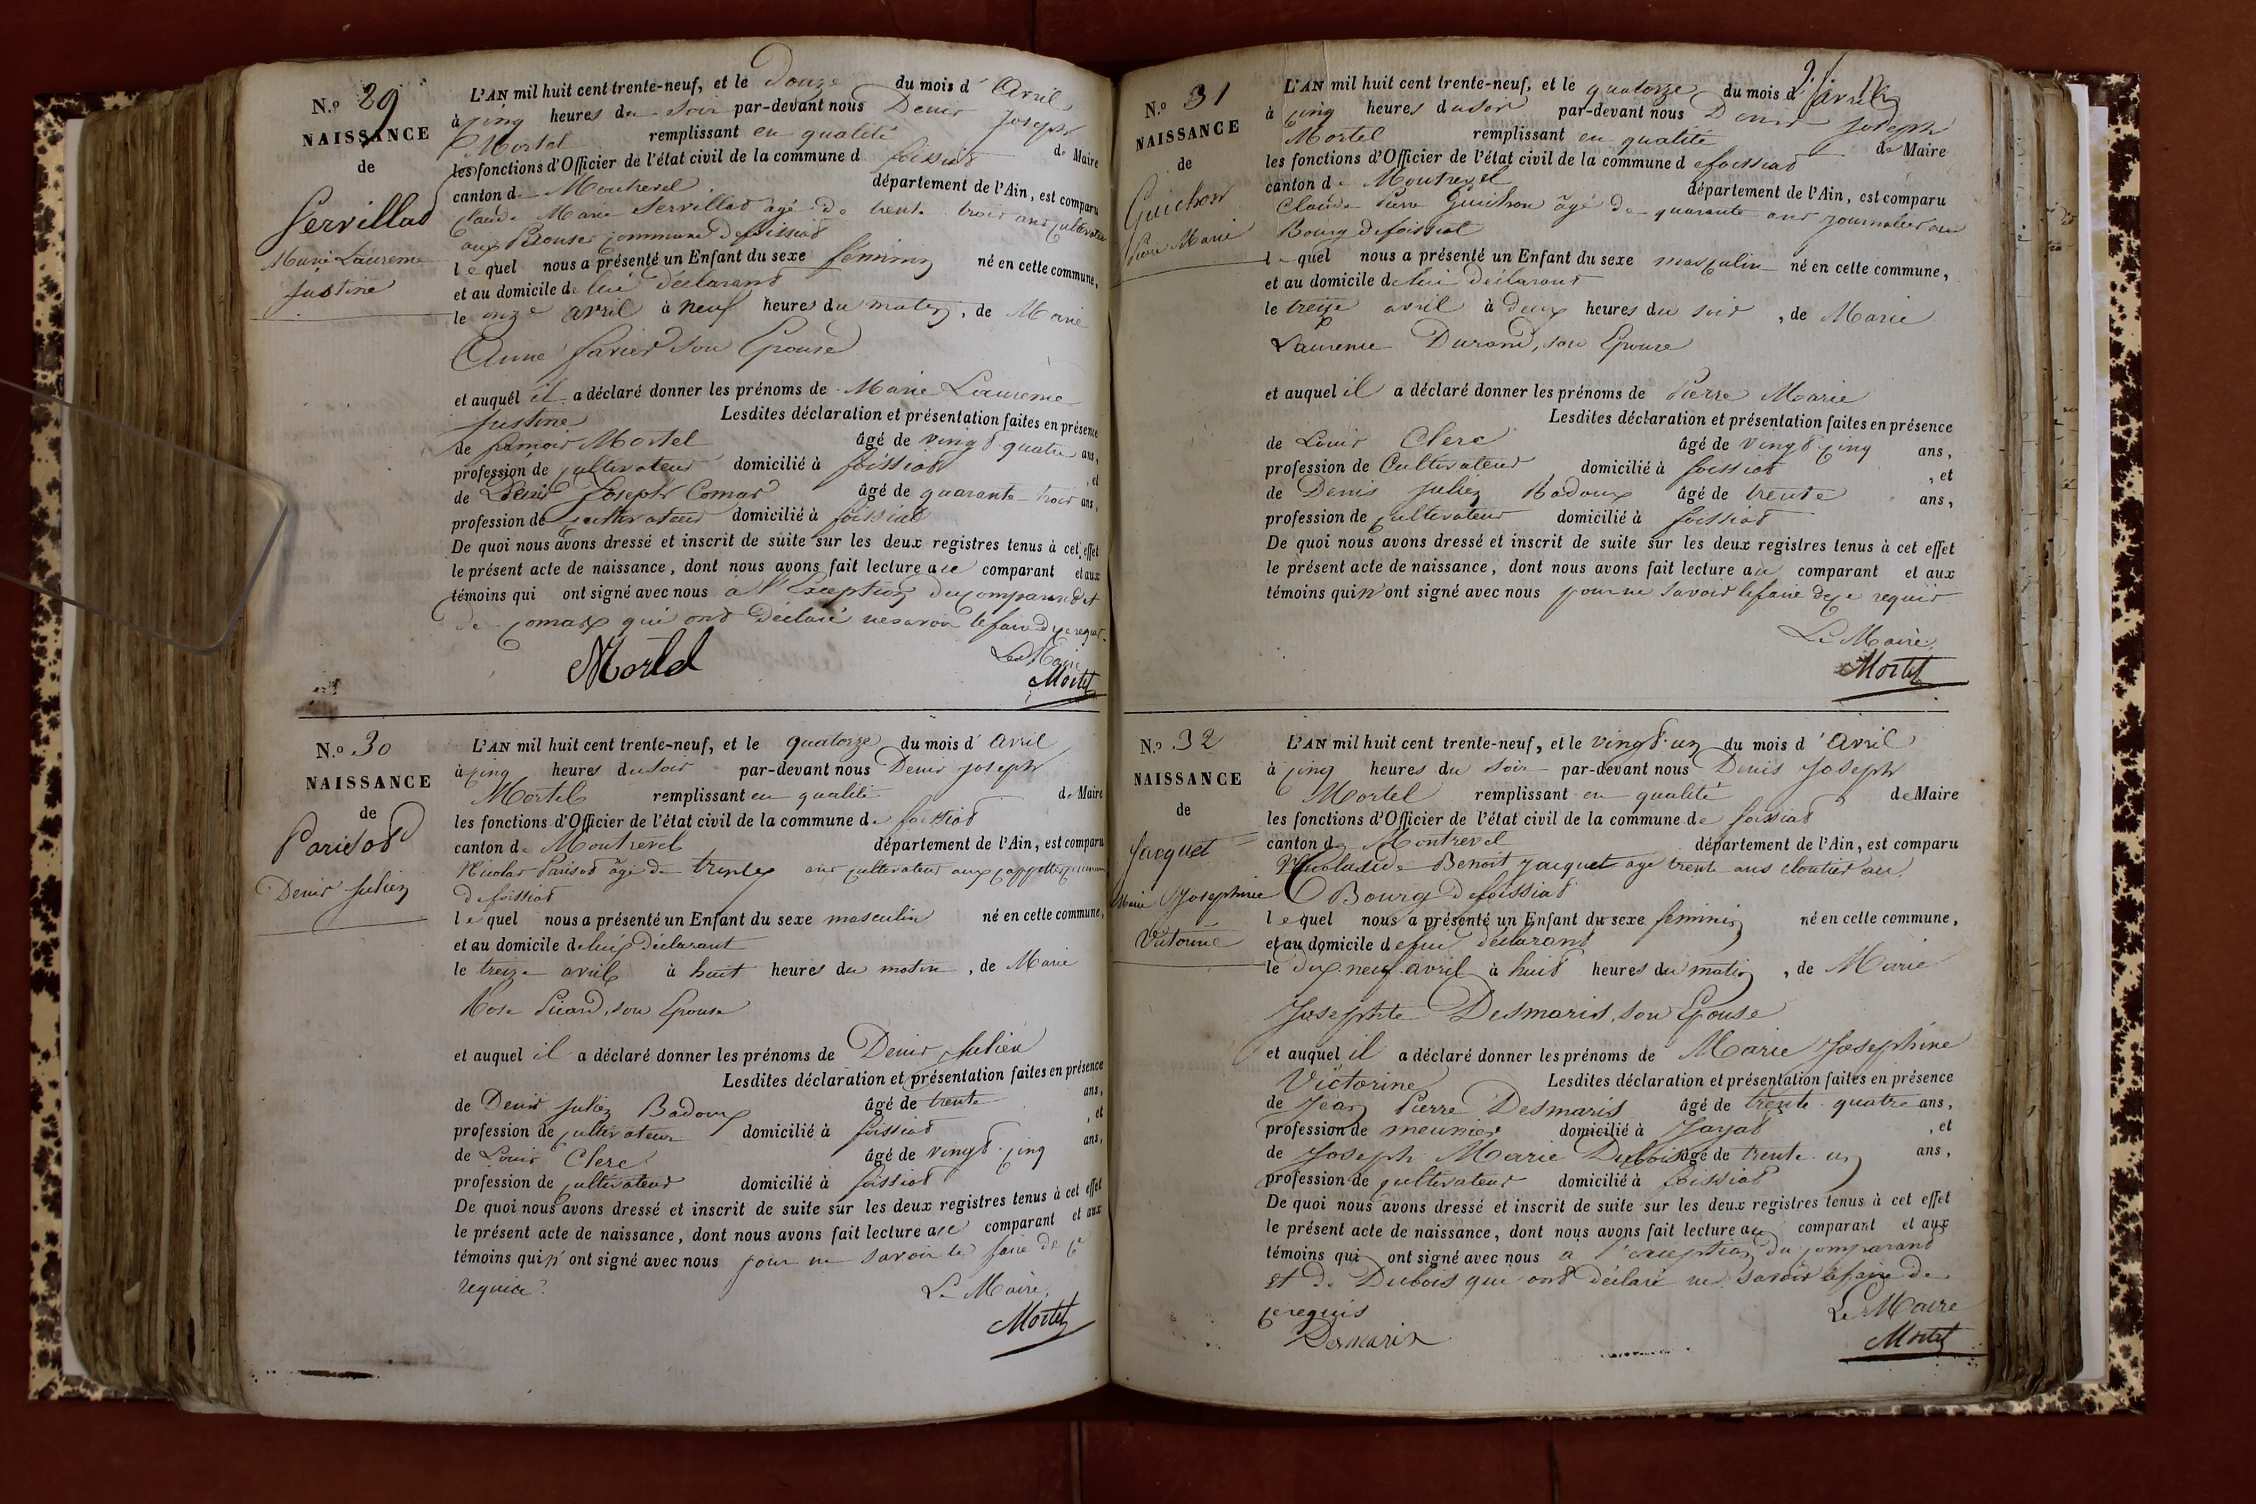 N.º 29
NAISSANCE
de
Servillat
Marie Laurence
Justine
L'AN mil huit cent trente-neuf, et le Douze du mois d'Avril
à cinq heures du soir par-devant nous Denis Joseph
Mortel remplissant en qualité de Maire
les fonctions d'Officier de l'état civil de la commune d foissiat
canton de Montrevel département de l'Ain, est comparu
Claude Marie Servillat âgé de trente trois ans cultivateur
aux commune de foissiat
lequel nous a présenté un Enfant du sexe féminin né en cette commune,
et au domicile de lui déclarant
le onze avril à neuf heures du matin, de Marie
Anne favier son Epouse
et auquel il a déclaré donner les prénoms de Marie Laurence
Justine Lesdites déclaration et présentation faites en présence
de françois Mortel âgé de vingt quatre ans,
profession de cultivateur domicilié à foissiat, et
de Denis Joseph Comas âgé de quarante trois ans,
profession de cultivateur domicilié à foissiat
De quoi nous avons dressé et inscrit de suite sur les deux registres tenus à cet effet
le présent acte de naissance, dont nous avons fait lecture au comparant et aux
témoins qui ont signé avec nous a l'Exception du comparant et
de Comas qui ont déclaré ne savoir le faire de ce requis
Le Maire
Mortel
Mortel
N.º 30
NAISSANCE
de
Parisod
Denis Julien
L'AN mil huit cent trente-neuf, et le quatorze du mois d'Avril
à cinq heures du soir par-devant nous Denis Joseph
Mortel remplissant en qualité de Maire
les fonctions d'Officier de l'état civil de la commune de foissiat
canton de Montrevel département de l'Ain, est comparu
Nicolas Parisod âgé de trente ans cultivateur aux commune
de foissiat
lequel nous a présenté un Enfant du sexe masculin né en cette commune,
et au domicile de lui déclarant
le treize avril à huit heures du matin, de Marie
Rose Picard, son Epouse
et auquel il a déclaré donner les prénoms de Denis Julien
Lesdites déclaration et présentation faites en présence
de Denis Julien Badoux âgé de trente ans,
profession de cultivateur domicilié à foissiat, et
de Louis Clerc âgé de vingt cinq ans,
profession de cultivateur domicilié à foissiat
De quoi nous avons dressé et inscrit de suite sur les deux registres tenus à cet effet
le présent acte de naissance, dont nous avons fait lecture au comparant et aux
témoins qui n'ont signé avec nous pour ne savoir le faire de ce
requis
Le Maire,
Mortel
N.º 31
NAISSANCE
de
Guichon
Pierre Marie
L'AN mil huit cent trente-neuf, et le quatorze du mois d'avril
à cinq heures du soir par-devant nous Denis Joseph
Mortel remplissant en qualité de Maire
les fonctions d'Officier de l'état civil de la commune de foissiat
canton de Montrevel département de l'Ain, est comparu
Claude Pierre Guichon âgé de quarante ans journalier au
Bourg de foissiat
lequel nous a présenté un Enfant du sexe masculin né en cette commune,
et au domicile de lui déclarant
le treize avril à deux heures du soir, de Marie
Laurence Durand, son Epouse
et auquel il a déclaré donner les prénoms de Pierre Marie
Lesdites déclaration et présentation faites en présence
de Louis Clerc âgé de vingt cinq ans,
profession de Cultivateur domicilié à foissiat, et
de Denis Julien Badoux âgé de trente ans,
profession de cultivateur domicilié à foissiat
De quoi nous avons dressé et inscrit de suite sur les deux registres tenus à cet effet
le présent acte de naissance, dont nous avons fait lecture au comparant et aux
témoins qui n'ont signé avec nous pour ne savoir le faire de ce requis
Le Maire,
Mortel
N.º 32
NAISSANCE
de
Jacquet
Marie Josephine
Victorine
L'AN mil huit cent trente-neuf, et le vingt un du mois d'Avril
à cinq heures du soir par-devant nous Denis Joseph
Mortel remplissant en qualité de Maire
les fonctions d'Officier de l'état civil de la commune de foissiat
canton de Montrevel département de l'Ain, est comparu
Claude Benoit Jacquet âgé trente ans cloutier au
Bourg de foissiat
lequel nous a présenté un Enfant du sexe feminin né en cette commune,
et au domicile de lui déclarant
le dix neuf avril à huit heures du matin, de Marie
Josephte Desmaris, son Epouse
et auquel il a déclaré donner les prénoms de Marie Josephine
Victorine Lesdites déclaration et présentation faites en présence
de Jean Pierre Desmaris âgé de trente quatre ans,
profession de meunier domicilié à Jayat, et
de Joseph Marie Dubois âgé de trente un ans,
profession de cultivateur domicilié à foissiat
De quoi nous avons dressé et inscrit de suite sur les deux registres tenus à cet effet
le présent acte de naissance, dont nous avons fait lecture au comparant et aux
témoins qui ont signé avec nous a l'exception du comparant
et de Dubois qui ont déclaré ne savoir le faire de
ce requis
Le Maire
Desmaris
Mortel